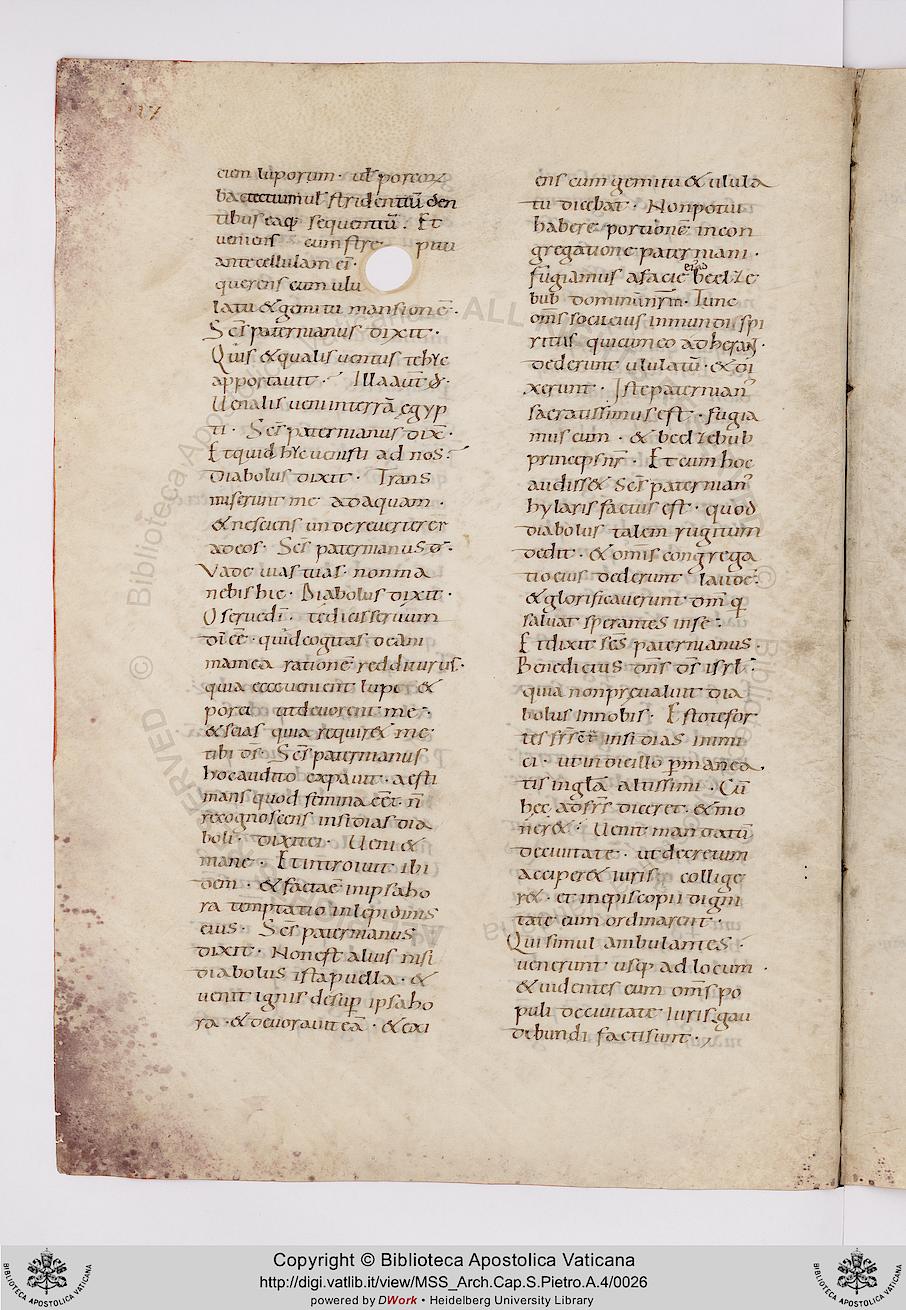 17
cum luporum · ul̄ porcor
bactectium ul̄ stridentiū den
tibus eaq; sequentiū . Et
ueniens cum stre pitu
ante cellulam ei ·
querens cum ulu
latu & gemitu mansionē ·
Sc̄s paternianus dixit ·
Quis & qualis uentus te hYc
apportauit · Illa aut̄ d̄ ·
Uenalis ueni in terrā ęgyp
ti · Sc̄s paternianus dix̄ ·
Et quid hYc uenisti ad nos :
Diabolus dixit · Trans
miserunt me ad aquam ·
& nesciens unde reuerterer
ad eos · Sc̄s paternianus d̄ ·
Vade uias tuas · nomina
nebis hic · Diabolus dixit ·
O serue dī · te dicis seruum
dī ēē · quid cogitas o cani
mamea rationē redditurus ·
quia ecce uenient lupi &
porci ut deuorent me ·
& scias quia requir& me
tibi ds̄ · Sc̄s paternianus
hoc audito expauit · aesti
mans quod femina ēēt · n̄
recognoscens insidias dia
boli · dixit ei · Ueni &
mane · Et introiuit ibi
dem · & facta ē in ipsa ho
ra temptatio in
eius · Sc̄s paternianus
dixit · Non est alius nisi
diabolus ista puella · &
uenit ignis desup ipsa ho
ra · & deuorauit eā · & exi
ens cum gemitu & ulula
tu dicebat · Non potui
habere portionē in con
gregatione paterniani ·
fugiamus a facie beelze
bub dominū nr̄m · Tunc
om̄s socii eius inmundi spi
ritus qui cum eo adheser̄ ·
dederunt ululatū · & di
xerunt · Iste paternian
sacratissimus est · fugia
mus eum · & beelzebub
princeps nr̄ · Et cum hoc
audiss& sc̄s paternian
hylaris factus est · quod
diabolus talem rugitum
dedit · & omis congrega
tio eius dederunt laude :
& glorificauerunt dn̄m q
saluat sperantes in se :
Et dixit sc̄s paternianus ·
Benedictus dn̄s ds̄ isrl̄ :
quia non pręualuit dia
bolus in nobis · Estote for
tes fr̄s in insidias inimi
ci · ut in die illo p̄manea
tis in gl̄a altissimi · Cū
hęc ad fr̄s diceret · & mo
ner& · Uenit mandatū
de ciuitate · ut decretum
acciper& iuris collige
r& · et in episcopii digni
tate eum ordinarent ·
Qui simul ambulantes ·
uenerunt usq; ad locum ·
& uidentes eum om̄s po
puli de ciuitate iuris gau
dibundi facti sunt ·,
© Biblioteca Apostolica Vaticana
Copyright © Biblioteca Apostolica Vaticana
http://digi.vatlib.it/view/MSS_Arch.Cap.S.Pietro.A.4/0026
powered by DWork • Heidelberg University Library
BIBLIOTECA APOSTOLICA VATICANA
BIBLIOTECA APOSTOLICA VATICANA